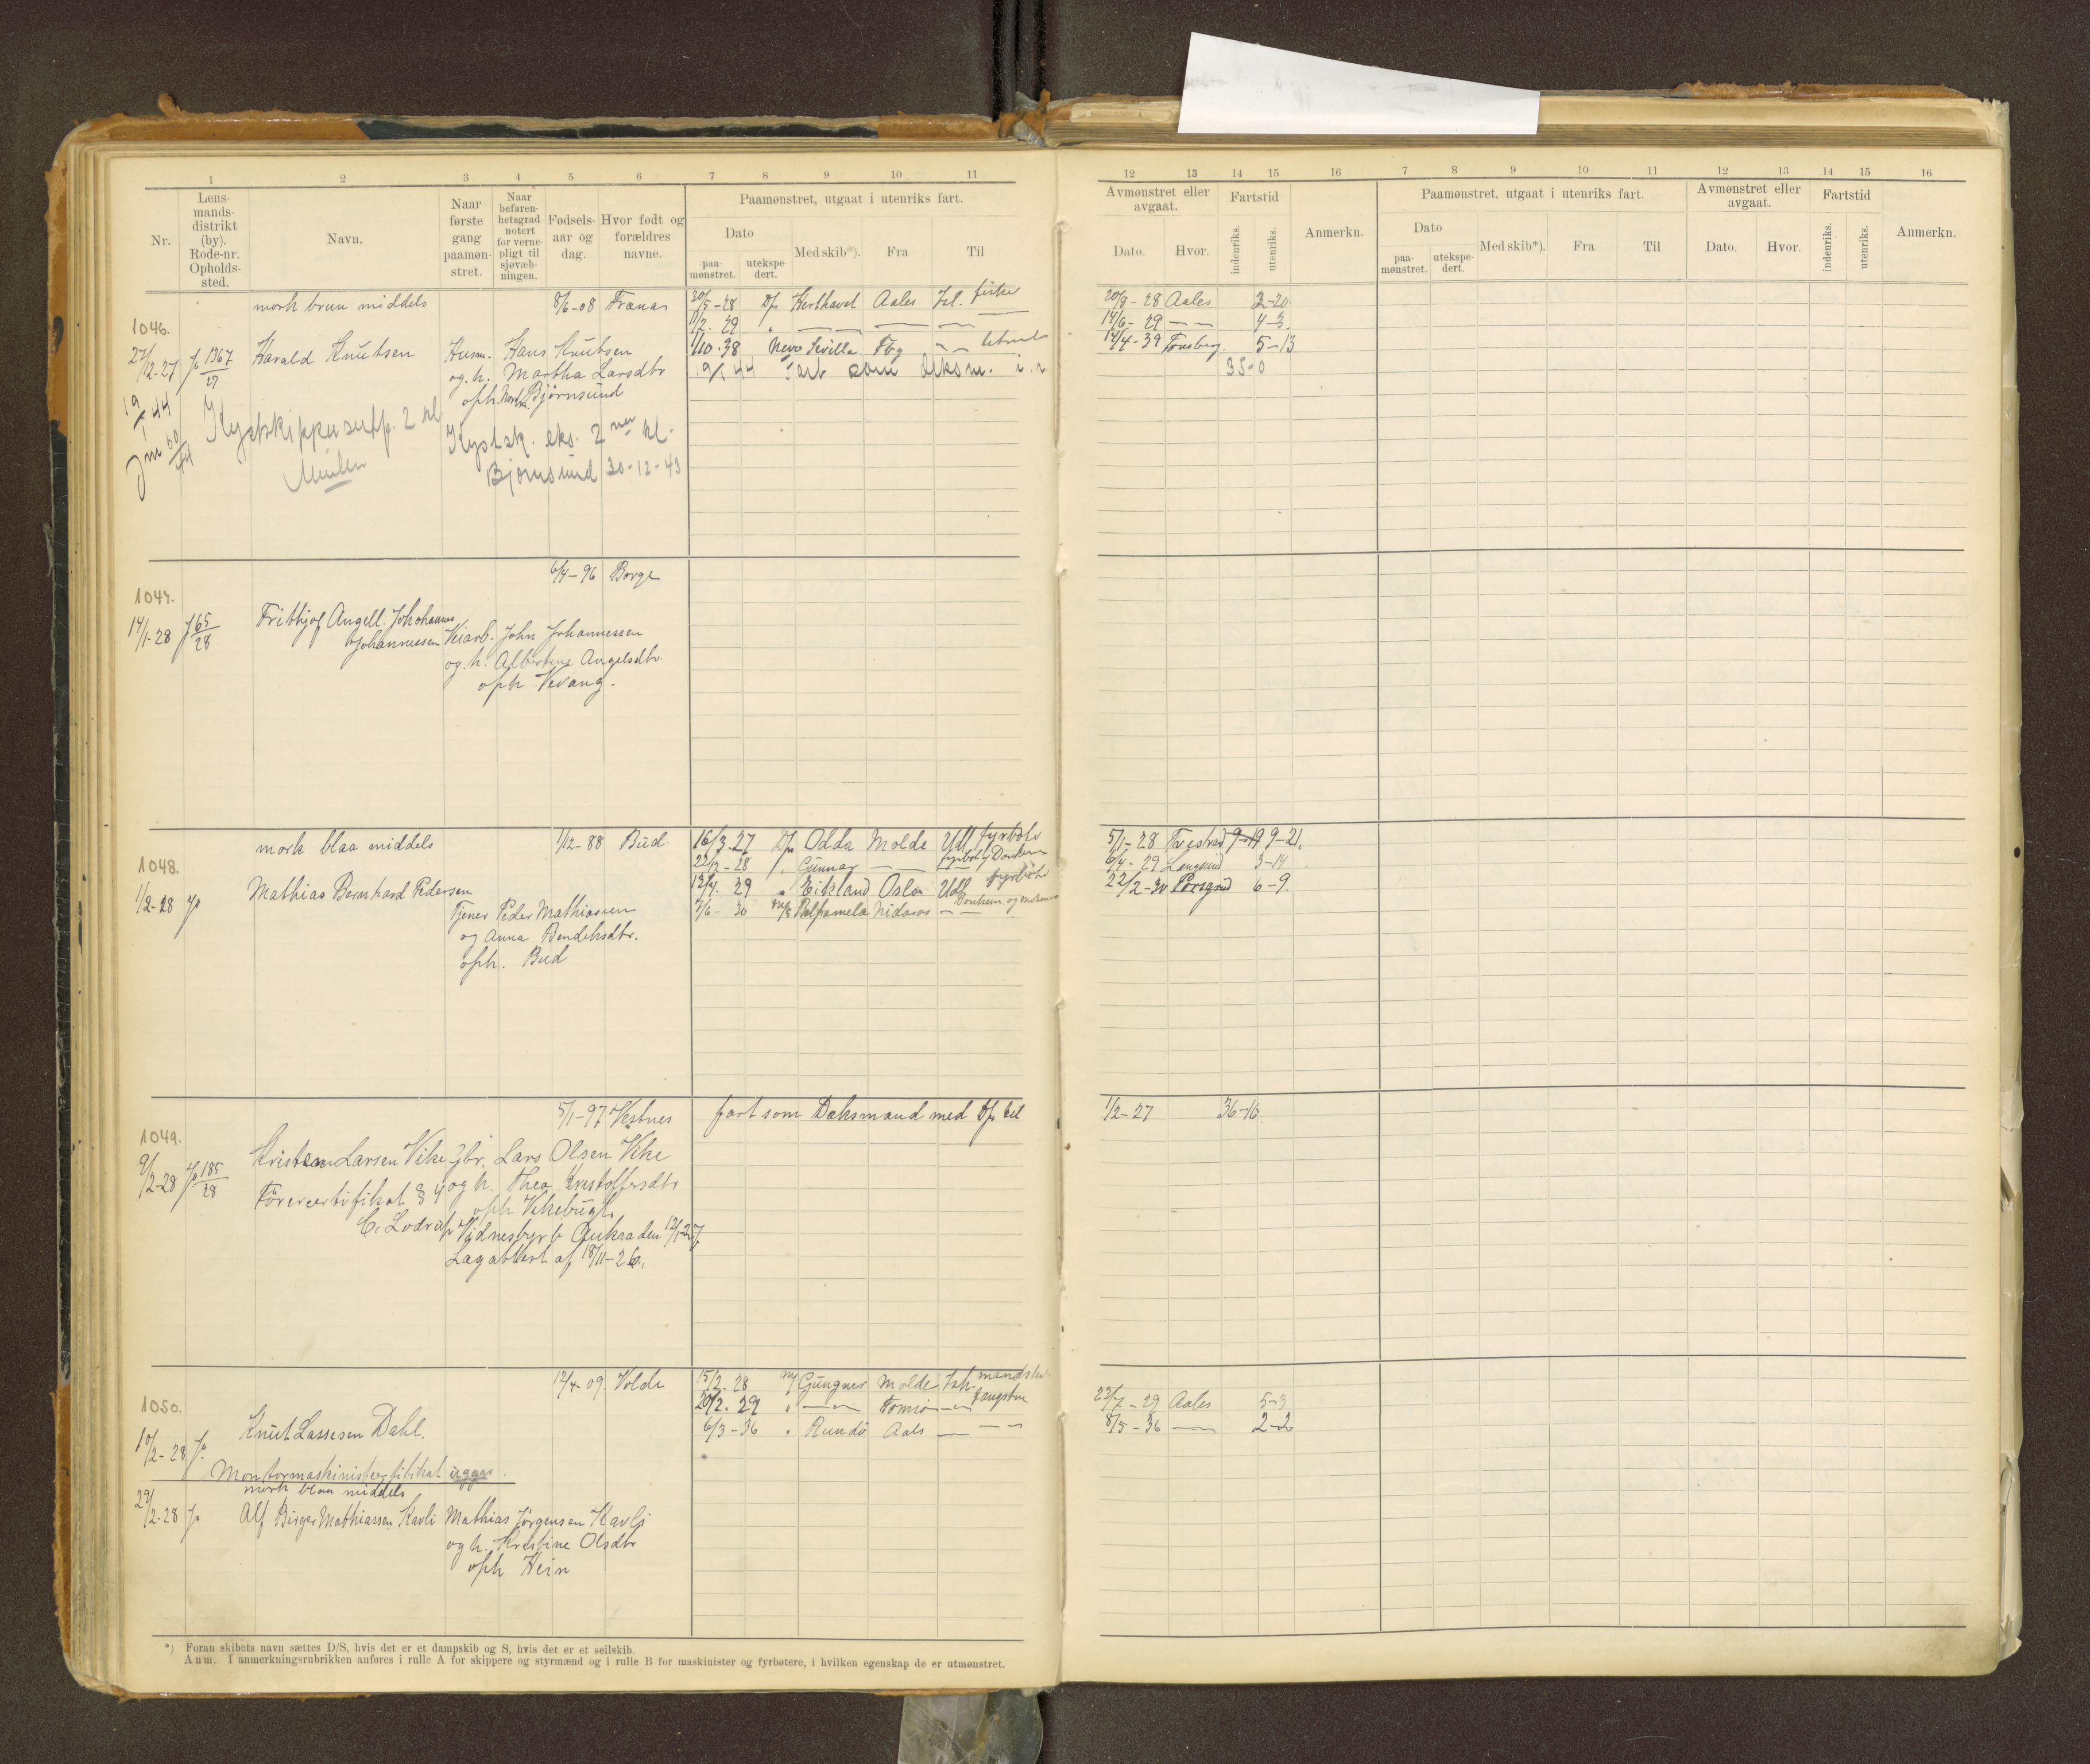 1 2 3 4 5 6 7 8 9 10 11
Nr. Lens-mands-distrikt (by). Rode-nr. Opholds-sted. Navn. Naar første gang paamøn-stret. Naar befaren-hetsgrad notert for verne-pligt til sjøvæb-ningen. Fødsels-aar og dag. Hvor født og forældres navne.
Paamønstret, utgaat i utenriks fart.
Dato Med skib*). Fra Til
paa-mønstret. utekspe-dert.
mork brun middels 8/6-08 Frænas 20/5-28 D/s Aales Isl. fiske
1046.
1/2. 29 " — — —
27/12-27 1367/27 Harald Knutsen Husm. Hans Knutsen 1/10.38 Sevilla Tbg
og. h. Martha Larsdtr 19/1 44 som
oph. Bjørnsund
19/1-44 Kystsk. eks. 2 kl.
Bjørnsund 30-12-43
6/4-96 Borge
1047.
14/1-28 65/28 Frithjof Angell. Johannes
Johannessen Veiarb. John Johannessen
og. h. Albertine Angelsdtr.
oph Vevang.
mork blaa middels 1/12-88 Bud. 16/3-27 D/s Odda Molde Utl fyrbøter
1048.
22/2-28 " Gunnar — Donkem
1/2-28 Mathias Bernhard Pedersen 12/4. 29 " Eikland Oslo Utl fyrbøter
7/6-30 Nidaros — Donkem. og
Tjener Peder Mathiassen
og Anna Bendiksdtr.
oph. Bud
5/1-97 Vestnes fart som Dæksmand med D/s til
1049.
9/2-28 185/28 Kristen Larsen Vike Gbr. Lars Olsen Vike
Førercertifikat § 4 og h. Thea Kristoffersdtr
oph Vikebugt.
Vidnesbyrd
Lægattest af 18/11-26.
12/4-09. Volda 15/2. 28 Gungner Molde Ish. mandsk.
1050.
20/2. 29 " — Tromsø — fangstm
Knut Lassesen Dahl. 6/3-36 " Rundö Aales —
10/2-28
Montormaskinistcertifikat
mork blaa middels
29/2-28 Alf Birger Mathiassen Kavli Mathias Jørgensen Kavli
og h. Kristine Olsdtr
oph Hein
*) Foran skibets navn sættes D/S, hvis det er et dampskib og S, hvis det er et seilskib.
Anm. I anmerkningsrubrikken anføres i rulle A for skippere og styrmænd og i rulle B for maskinister og fyrbøtere, i hvilken egenskap de er utmønstret.
12 13 14 15 16 7 8 9 10 11 12 13 14 15 16
Avmønstret eller avgaat. Fartstid Anmerkn. Paamønstret, utgaat i utenriks fart. Avmønstret eller avgaat. Fartstid Anmerkn.
Dato. Hvor. indenriks. utenriks. Dato Med skib*). Fra Til Dato. Hvor. indenriks. utenriks.
paa-mønstret. utekspe-dert.
20/8-28 Aales 3-20
14/6-29 — 4-3
14/4-39 Tønsberg. 5-13
35-0
5/1-28 9-19 9-21.
6/4-29 Langesund 3-14
22/2-30 Porsgrd 6-9.
1/2-27 36-16
22/7-29 Aales 5-3
8/5-36 — 2-2